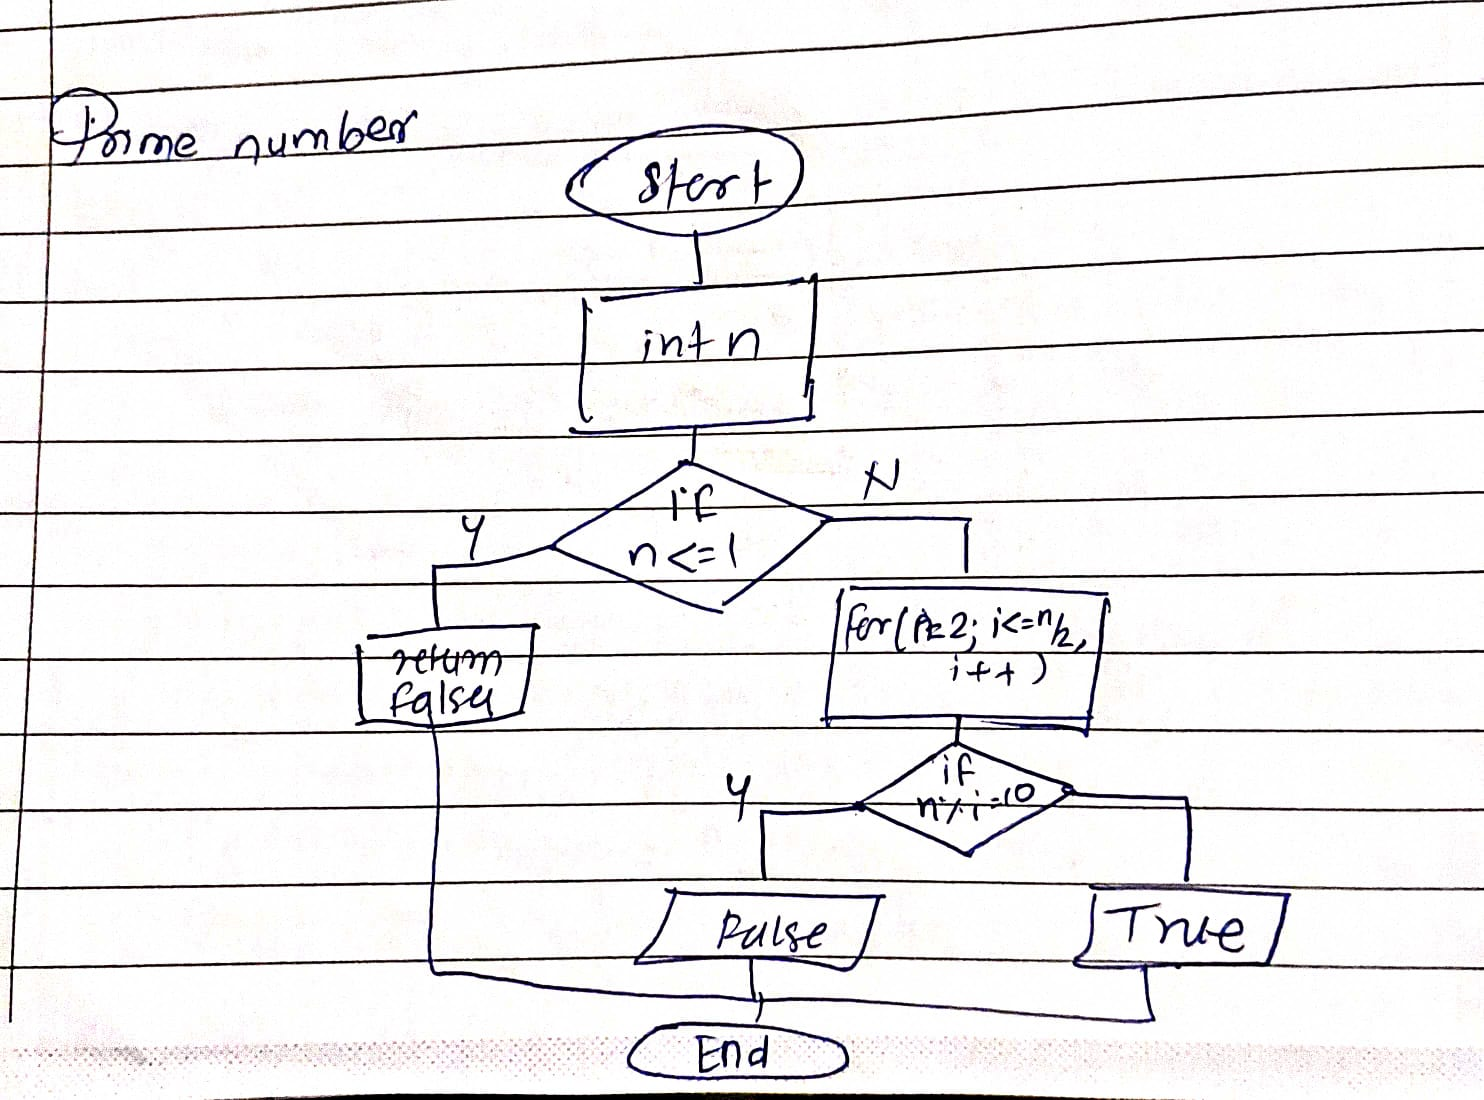 Prime number
Start
int n
if
n<=1
Y
N
return
false
for(i=2; i<=n/2,
i++)
if
n%i==0
Y
False
True
End